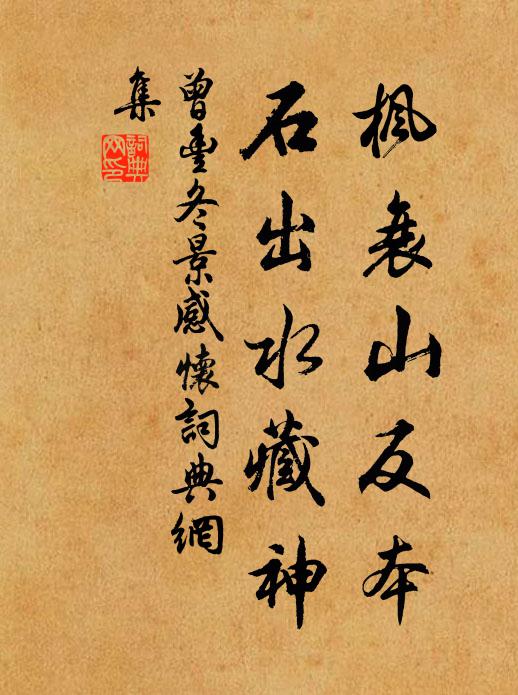 楓衰山反本
石出水藏神
曾豐冬景感懷詞典網
集
詞典
网印